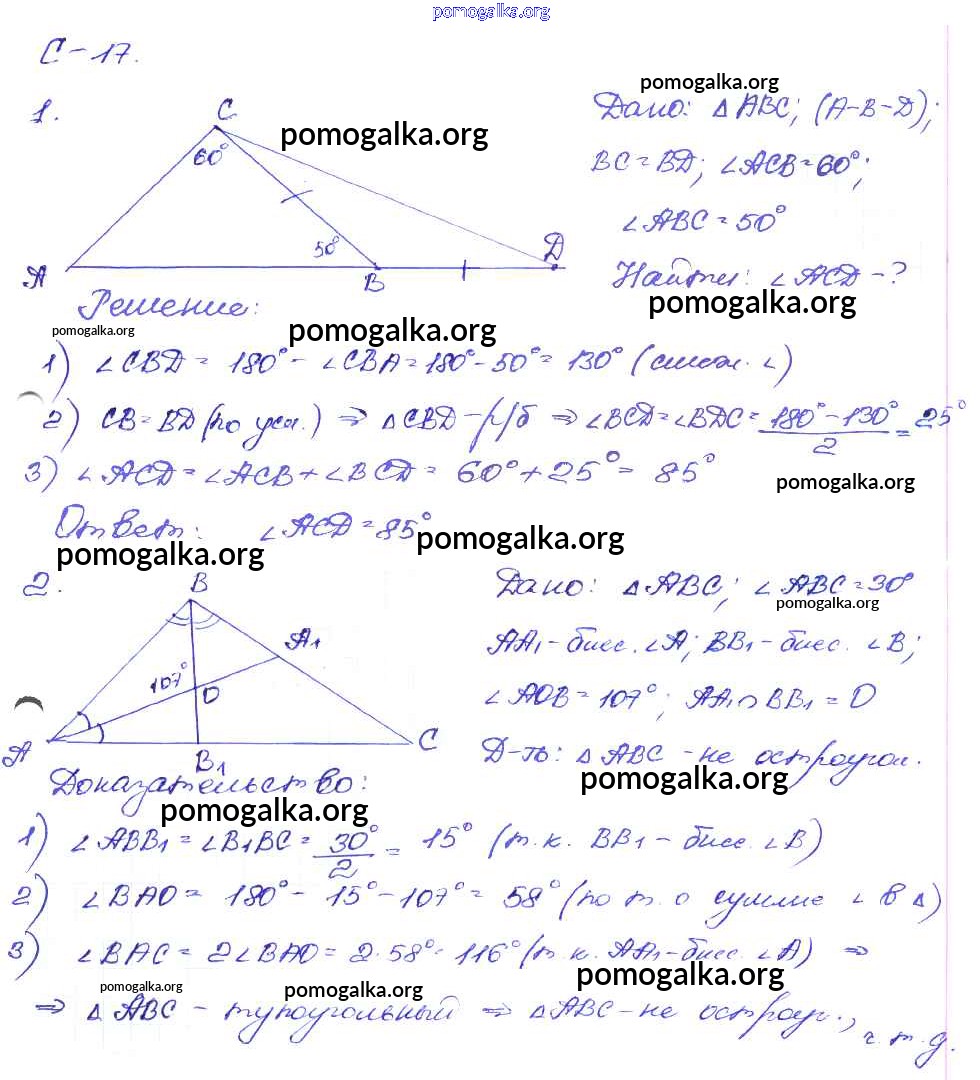 pomogalka.org
С-17.
pomogalka.org
1.
C
60°
50°
A
B
D
pomogalka.org
Дано: ΔABC; (A-B-D);
BC=BD; ∠ACB=60°;
∠ABC=50°
Найти: ∠ACD-?
pomogalka.org
Решение:
pomogalka.org
pomogalka.org
1) ∠CBD = 180°-∠CBA=180°-50°=130° (смеж. ∠)
2) CB=BD (по усл.) ⇒ ΔCBD-р/б ⇒ ∠BCD=∠BDC= 180°-130°/2 = 25°
3) ∠ACD=∠ACB+∠BCD= 60°+25°= 85°
pomogalka.org
Ответ: ∠ACD=85°
pomogalka.org
pomogalka.org
2.
B
A1
107°
O
A
B1
C
Дано: ΔABC; ∠ABC=30°
pomogalka.org
AA1-бисс. ∠A; BB1-бисс. ∠B;
∠AOB=107°; AA1∩BB1=O
Д-ть: ΔABC-не остроугол.
pomogalka.org
Доказательство:
pomogalka.org
1) ∠ABB1=∠B1BC= 30°/2 = 15° (т.к. BB1-бисс. ∠B)
2) ∠BAO= 180°-15°-107°= 58° (по т. о сумме ∠ в Δ)
3) ∠BAC= 2∠BAO= 2·58°=116° (т.к. AA1-бисс. ∠A) ⇒
pomogalka.org
pomogalka.org
pomogalka.org
⇒ ΔABC - тупоугольный ⇒ ΔABC-не остроуг.,
ч.т.д.